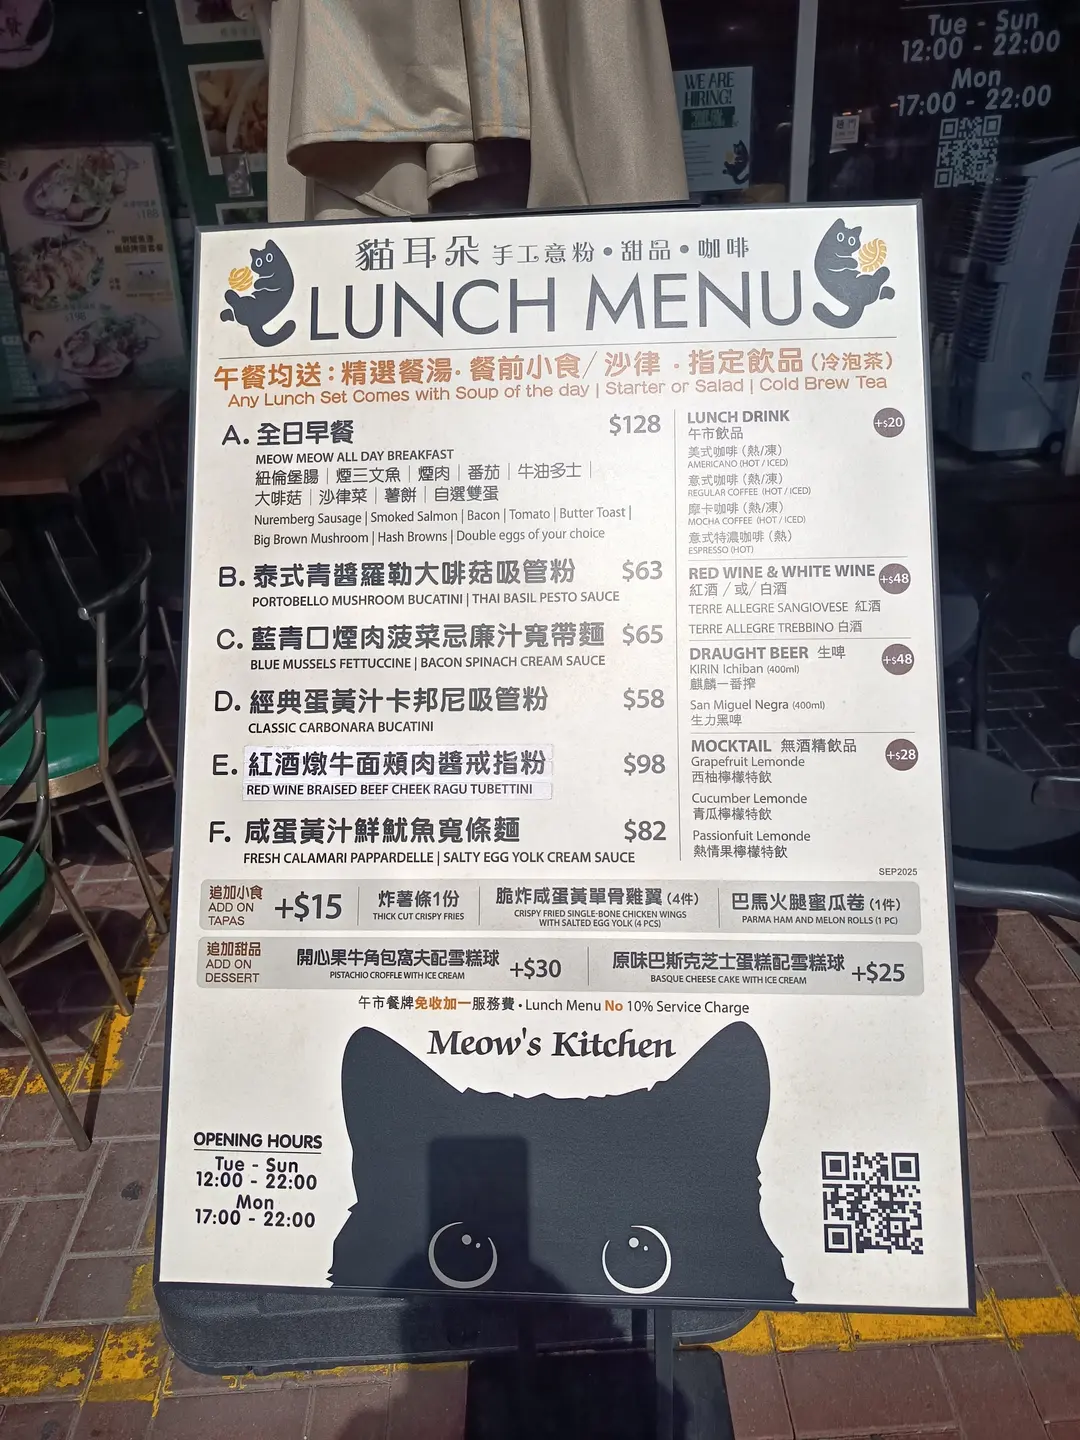 Tue - Sun
12:00 - 22:00
Mon
17:00 - 22:00
WE ARE
HIRING!
貓耳朵 手工意粉•甜品•咖啡
LUNCH MENU
午餐均送：精選餐湯·餐前小食/ 沙律·指定飲品(冷泡茶)
Any Lunch Set Comes with Soup of the day | Starter or Salad | Cold Brew Tea
A. 全日早餐 $128
MEOW MEOW ALL DAY BREAKFAST
紐倫堡腸｜煙三文魚｜煙肉｜番茄｜牛油多士｜
大啡菇｜沙律菜｜薯餅｜自選雙蛋
Nuremberg Sausage | Smoked Salmon | Bacon | Tomato | Butter Toast |
Big Brown Mushroom | Hash Browns | Double eggs of your choice
B. 泰式青醬羅勒大啡菇吸管粉 $63
PORTOBELLO MUSHROOM BUCATINI | THAI BASIL PESTO SAUCE
C. 藍青口煙肉菠菜忌廉汁寬帶麵 $65
BLUE MUSSELS FETTUCCINE | BACON SPINACH CREAM SAUCE
D. 經典蛋黃汁卡邦尼吸管粉 $58
CLASSIC CARBONARA BUCATINI
E. 紅酒燉牛面頰肉醬戒指粉 $98
RED WINE BRAISED BEEF CHEEK RAGU TUBETTINI
F. 咸蛋黃汁鮮魷魚寬條麵 $82
FRESH CALAMARI PAPPARDELLE | SALTY EGG YOLK CREAM SAUCE
LUNCH DRINK +$20
午市飲品
美式咖啡 (熱/凍)
AMERICANO (HOT / ICED)
意式咖啡 (熱/凍)
REGULAR COFFEE (HOT / ICED)
摩卡咖啡 (熱/凍)
MOCHA COFFEE (HOT / ICED)
意式特濃咖啡 (熱)
ESPRESSO (HOT)
RED WINE & WHITE WINE +$48
紅酒 / 或/ 白酒
TERRE ALLEGRE SANGIOVESE 紅酒
TERRE ALLEGRE TREBBINO 白酒
DRAUGHT BEER 生啤 +$48
KIRIN Ichiban (400ml)
麒麟一番搾
San Miguel Negra (400ml)
生力黑啤
MOCKTAIL 無酒精飲品 +$28
Grapefruit Lemonde
西柚檸檬特飲
Cucumber Lemonde
青瓜檸檬特飲
Passionfuit Lemonde
熱情果檸檬特飲
SEP2025
追加小食
ADD ON
TAPAS
+$15
炸薯條1份
THICK CUT CRISPY FRIES
脆炸咸蛋黃單骨雞翼 (4件)
CRISPY FRIED SINGLE-BONE CHICKEN WINGS
WITH SALTED EGG YOLK (4 PCS)
巴馬火腿蜜瓜卷 (1件)
PARMA HAM AND MELON ROLLS (1 PC)
追加甜品
ADD ON
DESSERT
開心果牛角包窩夫配雪糕球 +$30
PISTACHIO CROFFLE WITH ICE CREAM
原味巴斯克芝士蛋糕配雪糕球 +$25
BASQUE CHEESE CAKE WITH ICE CREAM
午市餐牌免收加一服務費 • Lunch Menu No 10% Service Charge
Meow's Kitchen
OPENING HOURS
Tue - Sun
12:00 - 22:00
Mon
17:00 - 22:00